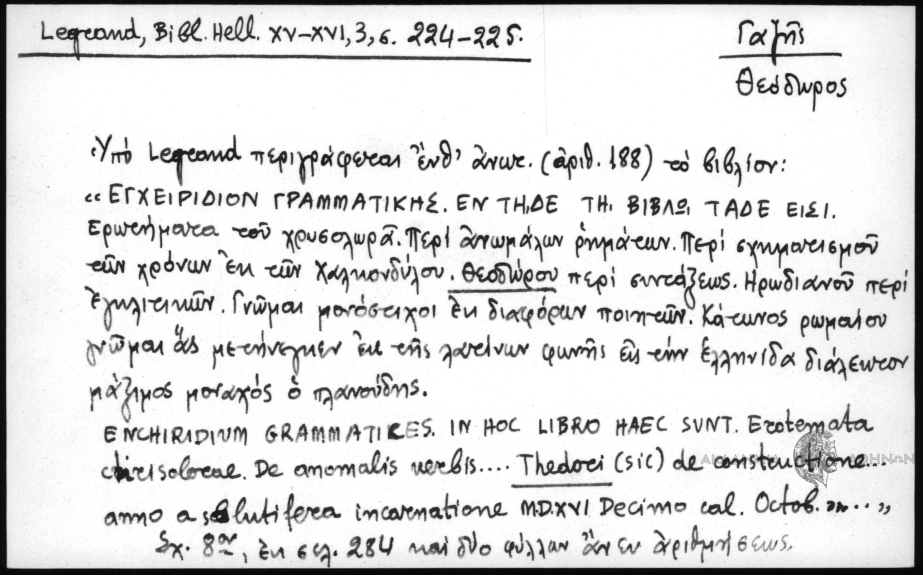 Legrand, Bibl. Hell. XV-XVI, 3, σ. 224-225.
Γαζῆς
Θεόδωρος
Ὑπό Legrand περιγράφεται ἐνθ' ἄνωτ. (ἀριθ. 188) τό βιβλίον:
«ΕΓΧΕΙΡΙΔΙΟΝ ΓΡΑΜΜΑΤΙΚΗΣ. ΕΝ ΤΗΙΔΕ ΤΗΙ ΒΙΒΛΩΙ ΤΑΔΕ ΕΙΣΙ.
Ερωτήματα τοῦ χρυσολωρᾶ. Περί ἀνωμάλων ῥημάτων. Περί σχηματισμοῦ
τῶν χρόνων ἐκ τῶν Χαλκονδύλου. Θεοδώρου περί συντάξεως. Ηρωδιανοῦ περί
ἐγκλιτικῶν. Γνῶμαι μονόστιχοι ἐκ διαφόρων ποιητῶν. Κάτωνος ρωμαίου
γνῶμαι ἅς μετήνεγκεν ἐκ τῆς λατίνων φωνῆς εἰς τήν ἑλληνίδα διάλεκτον
μάξιμος μοναχός ὁ πλανούδης.
ENCHIRIDIUM GRAMMATICES. IN HOC LIBRO HAEC SVNT. Erotemata
chrisolorae. De anomalis verbis.... Thedori (sic) de constructione...
anno a salutifera incarnatione M.D.XVI Decimo cal. Octob. ...»
Σχ. 8ον, ἐκ σελ. 284 καί δύο φύλλων ἄνευ ἀριθμήσεως.